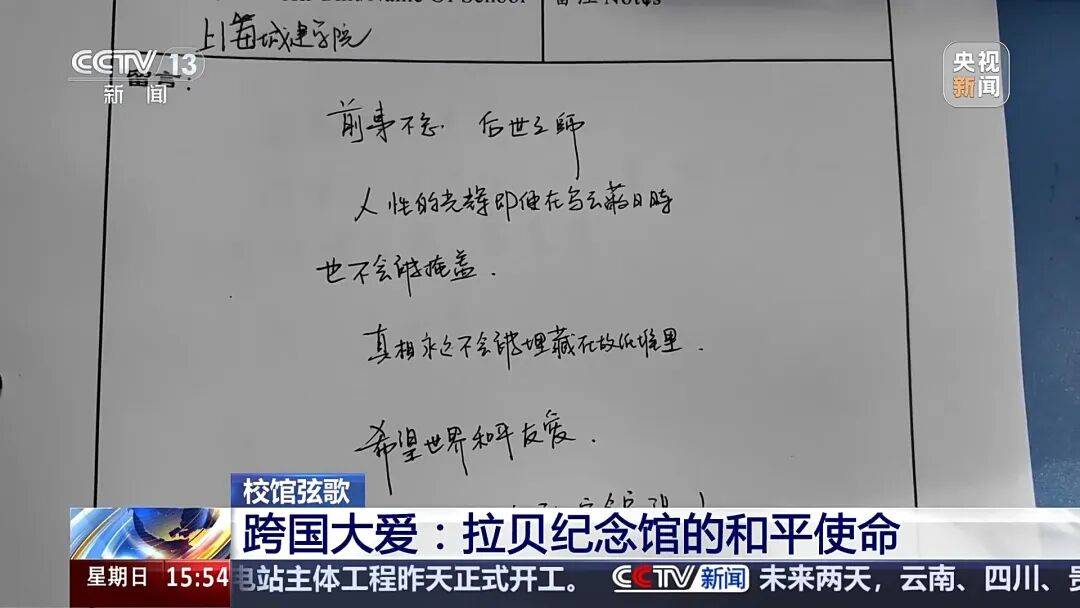 Name Of School
备注 Notes
上海城建学院
CCTV 13
新闻
央视
新闻
留言：
前事不忘 后世之師
人性的光辉即便在乌云蔽日時
也不会被掩盖.
真相永远不会被埋藏在故纸堆里.
希望世界和平友爱.
校馆弦歌
跨国大爱：拉贝纪念馆的和平使命
星期日 15:54
电站主体工程昨天正式开工。 CCTV新闻 未来两天，云南、四川、贵